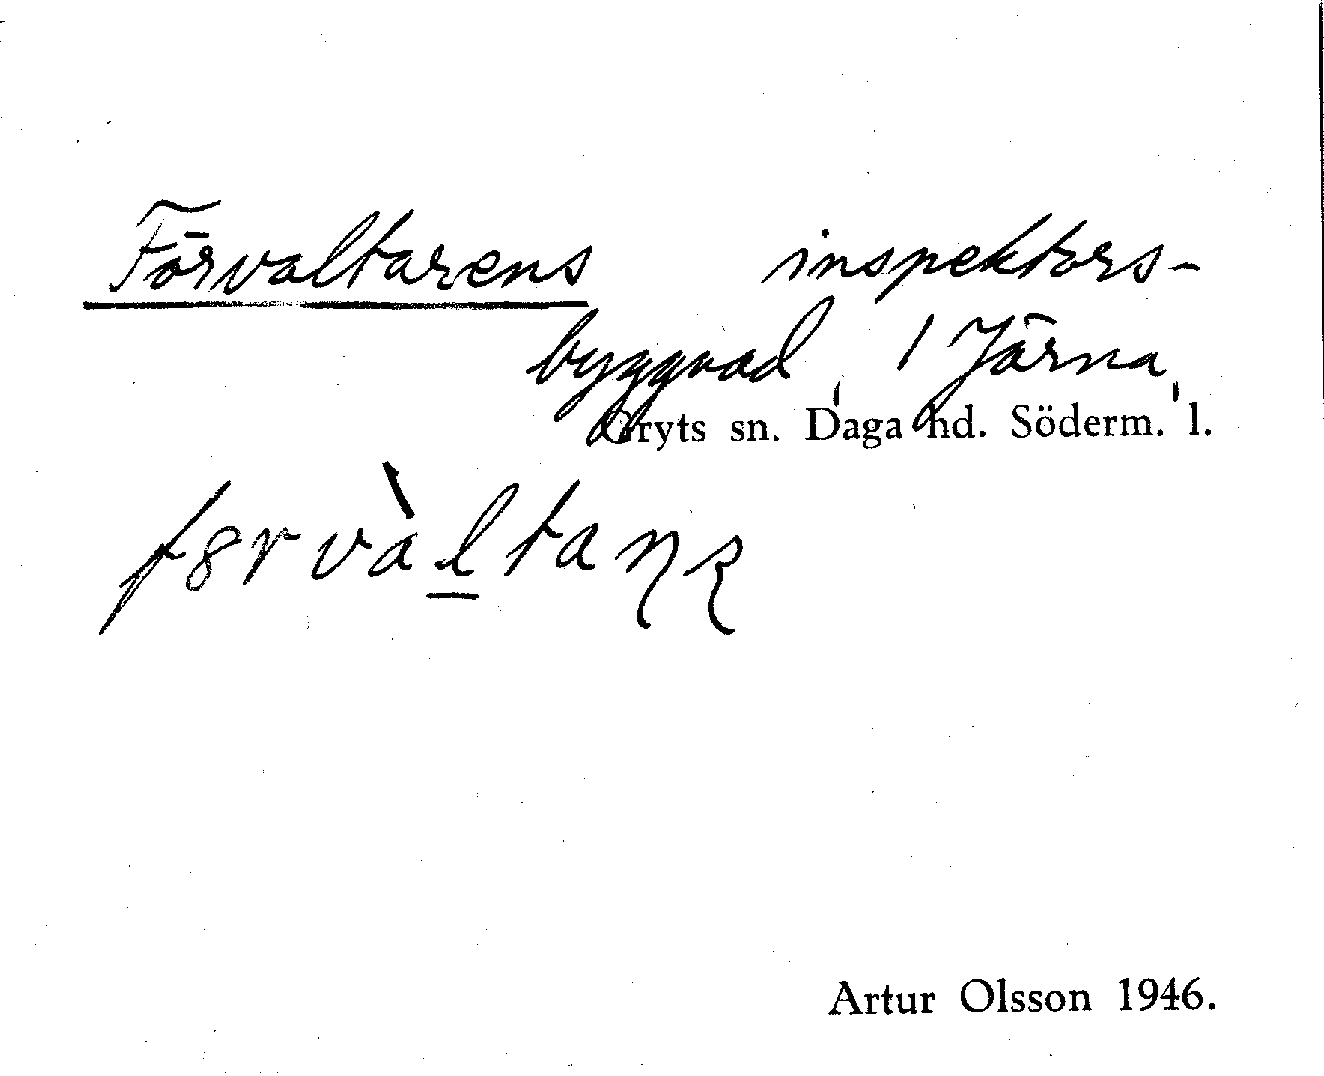 Förvaltarens inspektors-
byggnad, 1 Järna,
Gryts sn. Daga hd. Söderm. l.
Artur Olsson 1946.